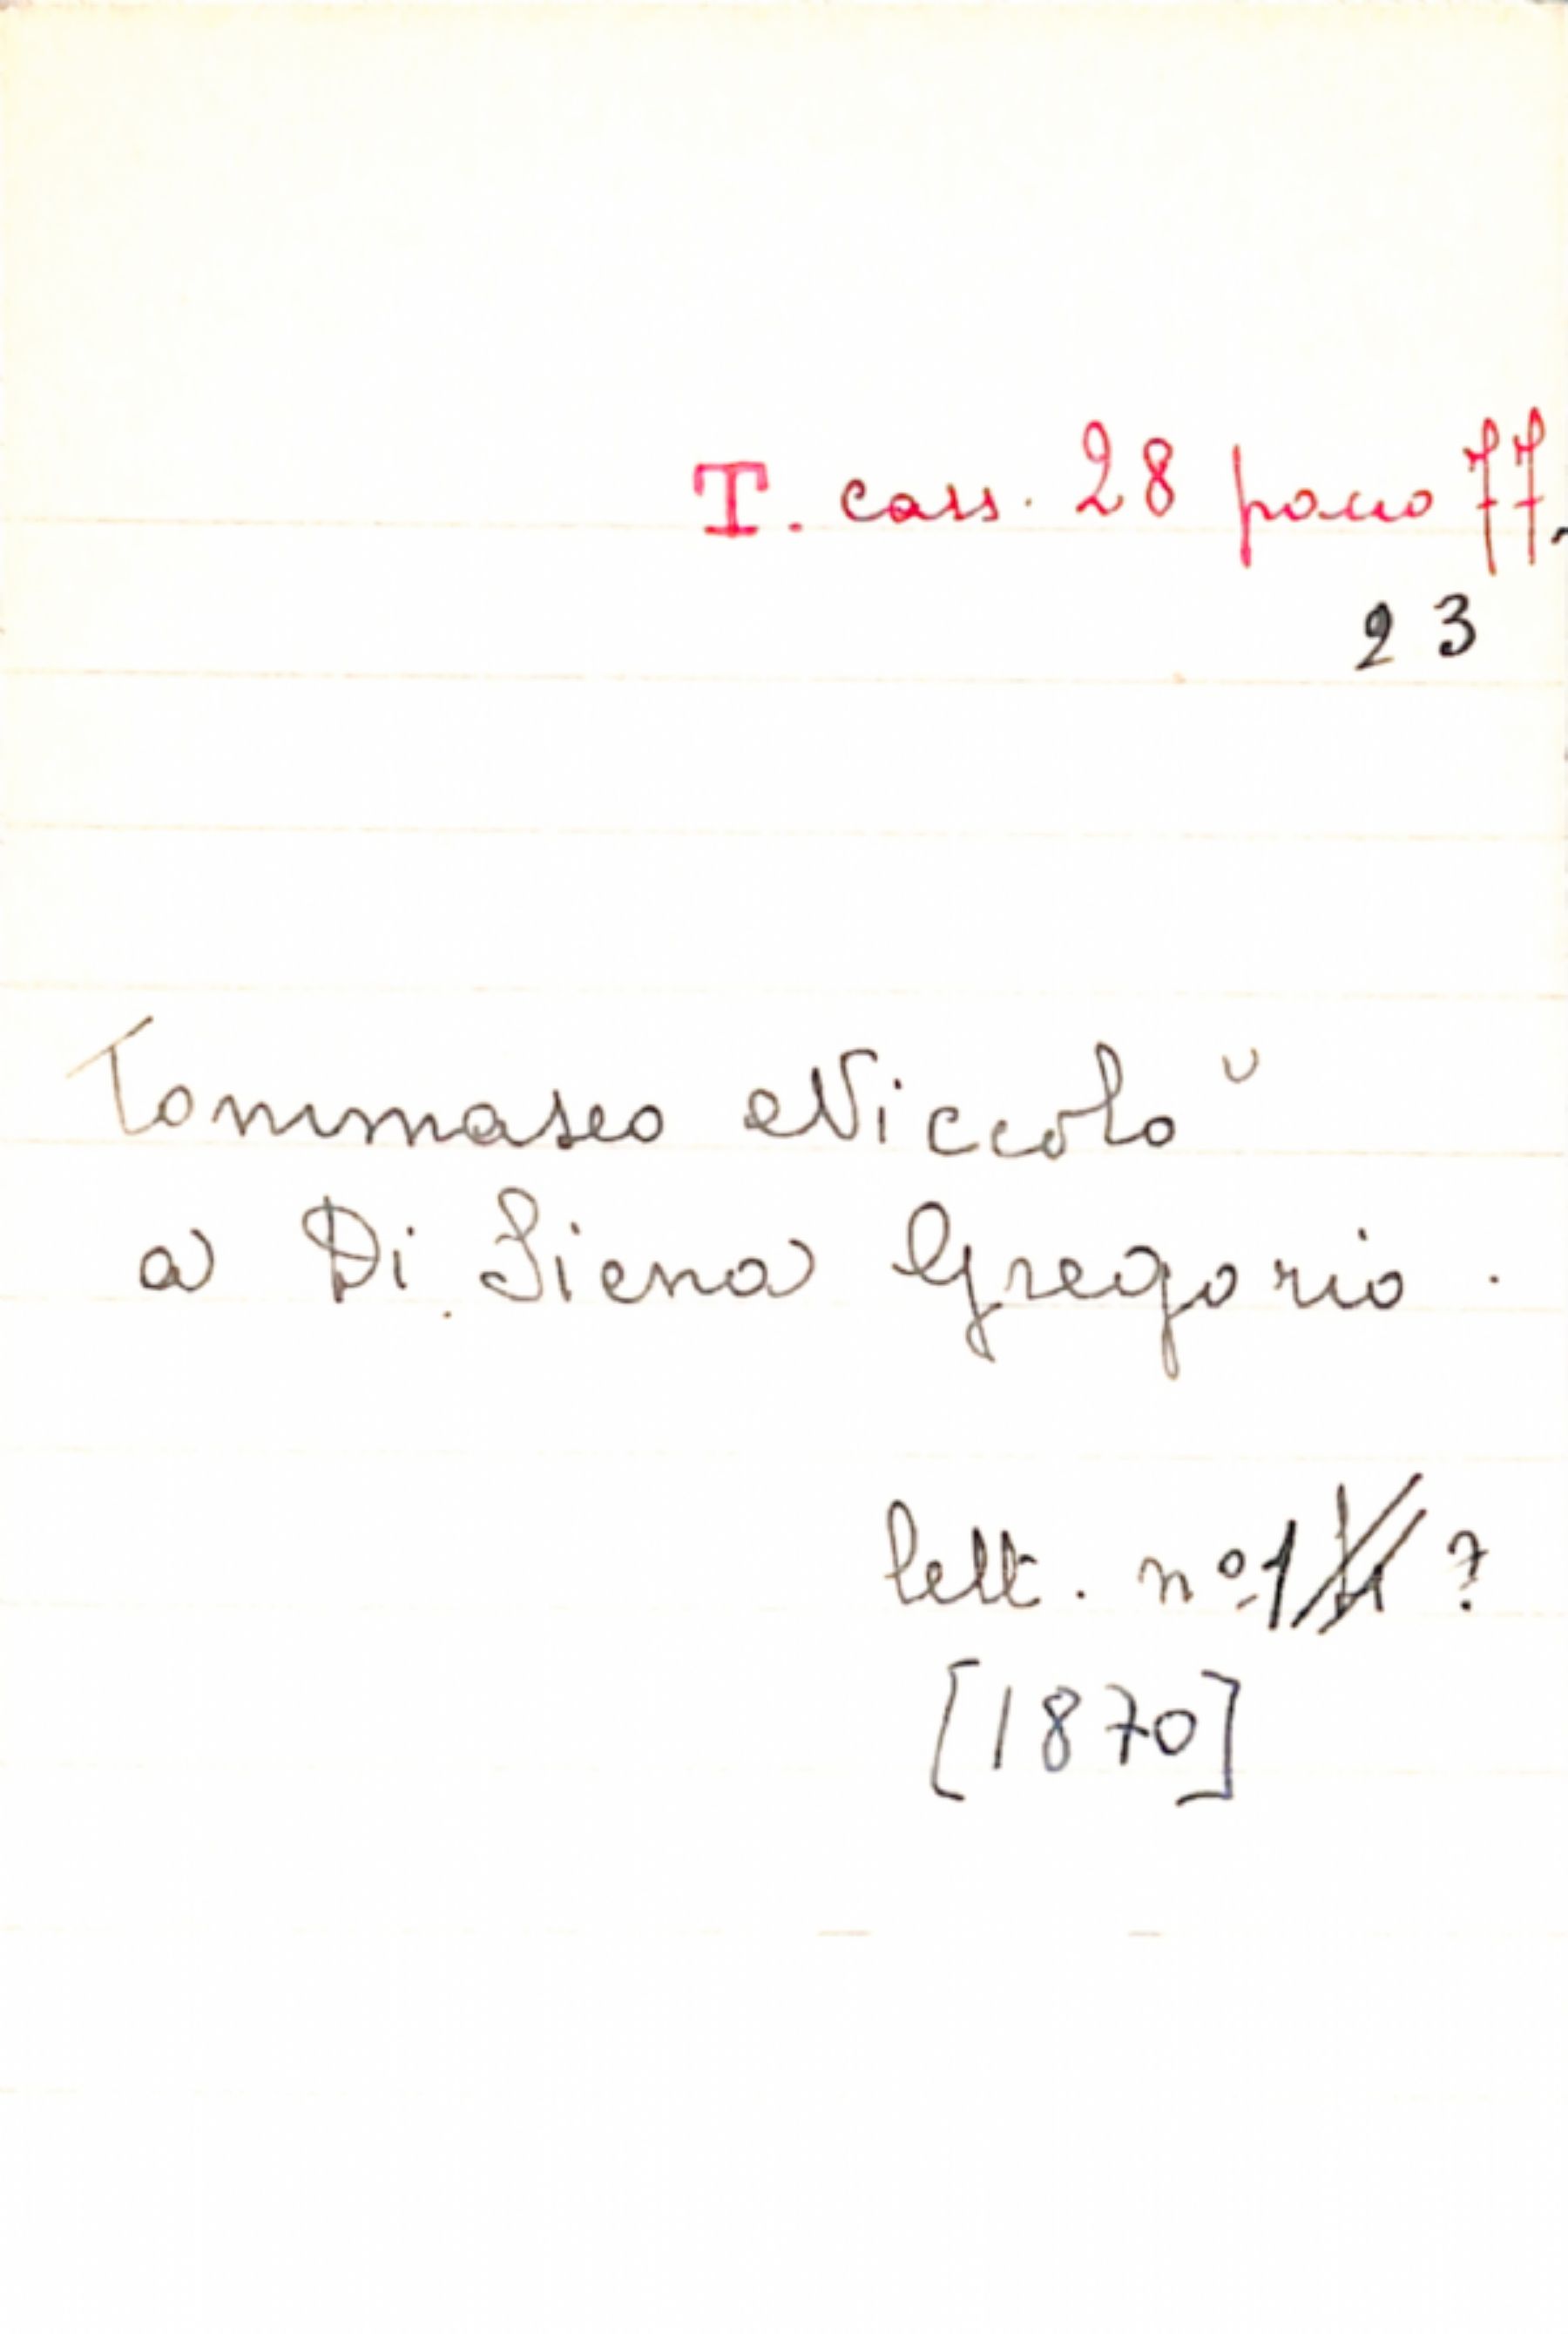 T. cass. 28 pacco 77.
23
Tommaseo Niccolò
a Di Siena Gregorio.
lett. nº 1 ?
[1870]